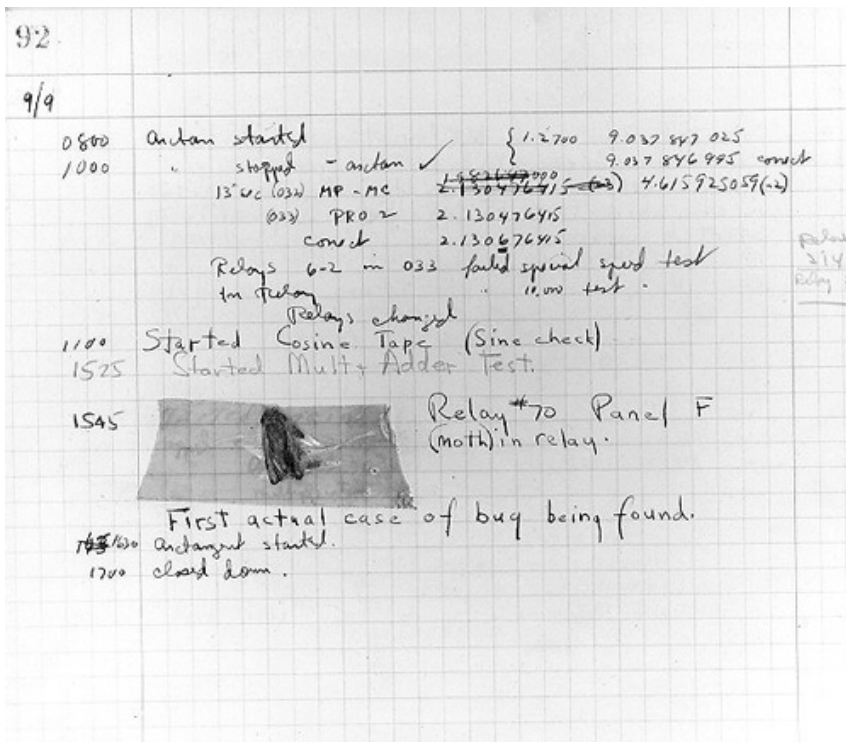 92
9/9
0800 Antan started { 1.2700 9.037 847 025
1000 " stopped - antan ✓ 9.037 846 995 correct
13"uc (032) MP - MC 2.130476415 (-3) 4.615925059(-2)
(033) PRO 2 2.130476415
correct 2.130676415
Relays 6-2 in 033 failed special speed test
In Relay " 10.000 test .
Relays changed
1100 Started Cosine Tape (Sine check)
1525 Started Mult+ Adder Test.
1545 Relay #70 Panel F
(moth) in relay.
First actual case of bug being found.
1630 Antangent started.
1700 closed down.